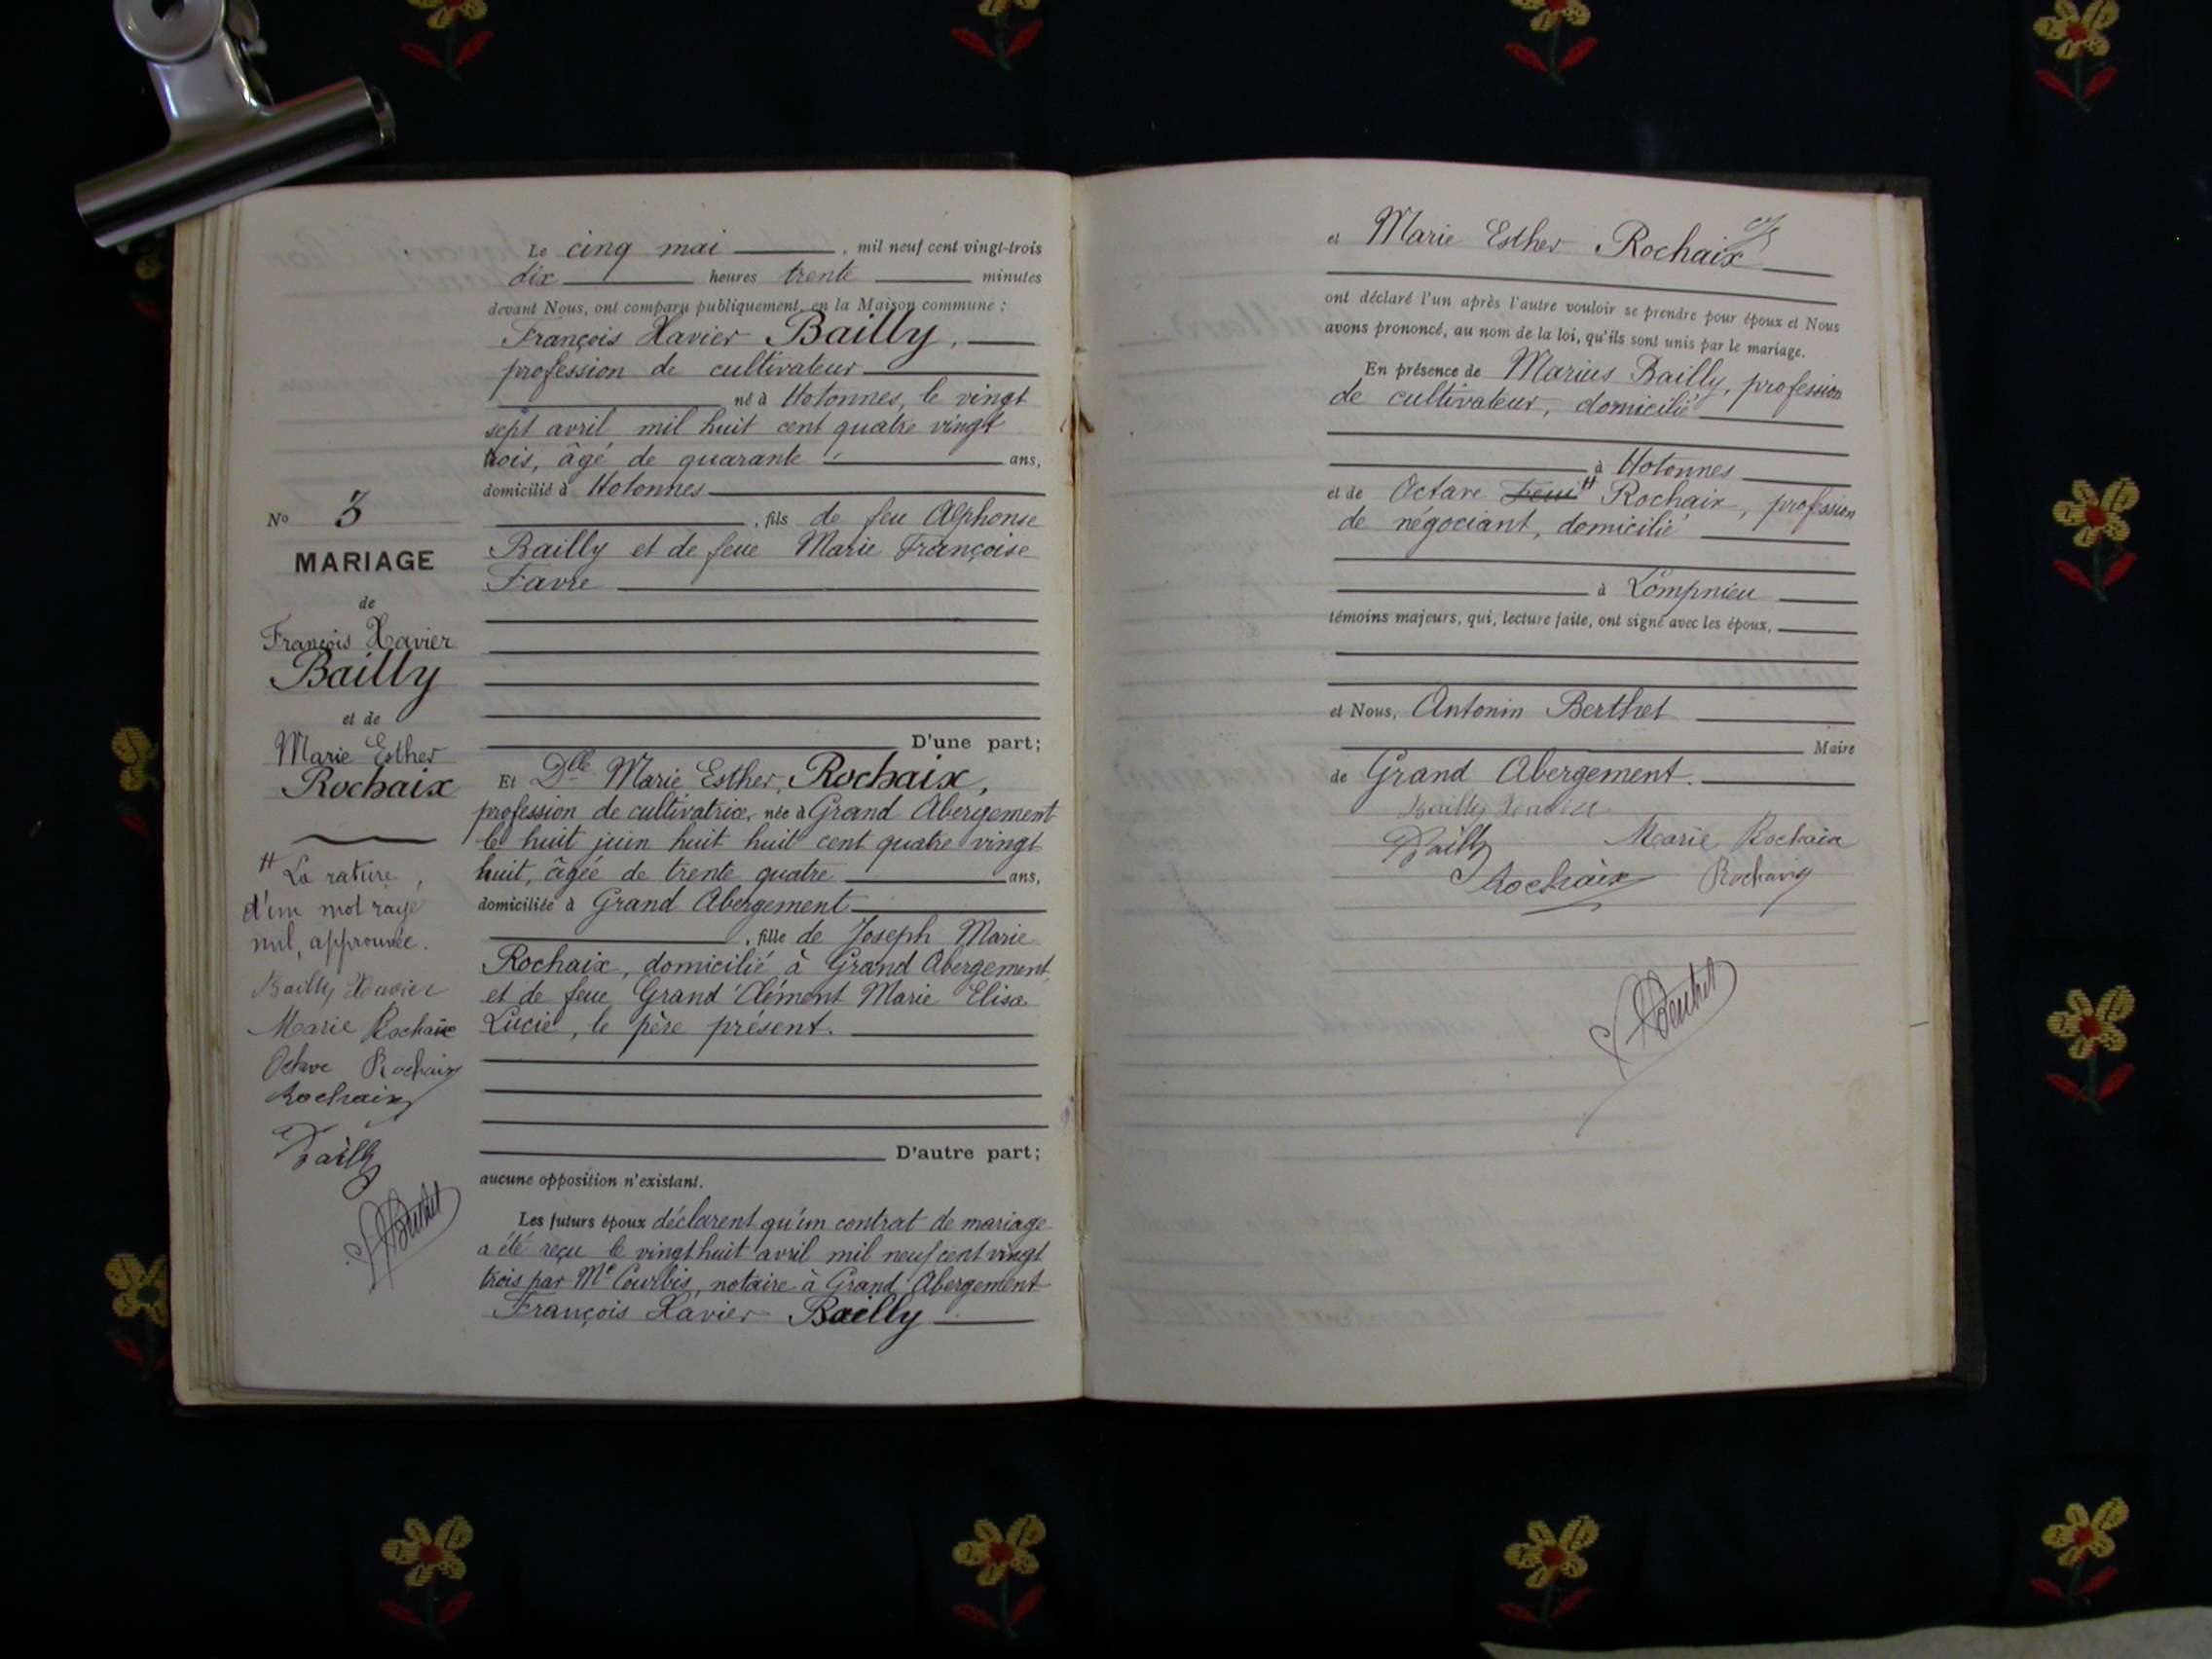 Le cinq mai , mil neuf cent vingt-trois
dix heures trente minutes
devant Nous, ont comparu publiquement, en la Maison commune :
François Xavier Bailly,
profession de cultivateur
né à Hotonnes, le vingt
sept avril mil huit cent quatre vingt
trois, âgé de quarante ans,
domicilié à Hotonnes
, fils de feu Alphonse
Bailly et de feue Marie Françoise
Favre
D'une part;
Et Dlle Marie Esther, Rochaix,
profession de cultivatrice, née à Grand Abergement
le huit juin huit huit cent quatre vingt
huit, âgée de trente quatre ans,
domiciliée à Grand Abergement
, fille de Joseph Marie
Rochaix, domicilié à Grand Abergement,
et de feue Grand Clément Marie Elisa
Lucie, le père présent.
D'autre part;
aucune opposition n'existant.
Les futurs époux déclarent qu'un contrat de mariage
a été reçu le vingt huit avril mil neuf cent vingt
trois par Me Courbis, notaire à Grand Abergement
François Xavier Bailly
No 3
MARIAGE
de
François Xavier
Bailly
et de
Marie Esther
Rochaix
# La rature,
d'un mot rayé
nul, approuvée.
Bailly Xavier
Marie Rochaix
Octave Rochaix
Rochaix
Bailly
ABerthet
et Marie Esther Rochaix
ont déclaré l'un après l'autre vouloir se prendre pour époux et Nous
avons prononcé, au nom de la loi, qu'ils sont unis par le mariage.
En présence de Marius Bailly, profession
de cultivateur, domicilié
à Hotonnes
et de Octave # Rochaix, profession
de négociant, domicilié
à Lompnieu
témoins majeurs, qui, lecture faite, ont signé avec les époux,
et Nous, Antonin Berthet
Maire
de Grand Abergement.
Bailly Xavier
Bailly Marie Rochaix
Rochaix Rochaix
ABerthet